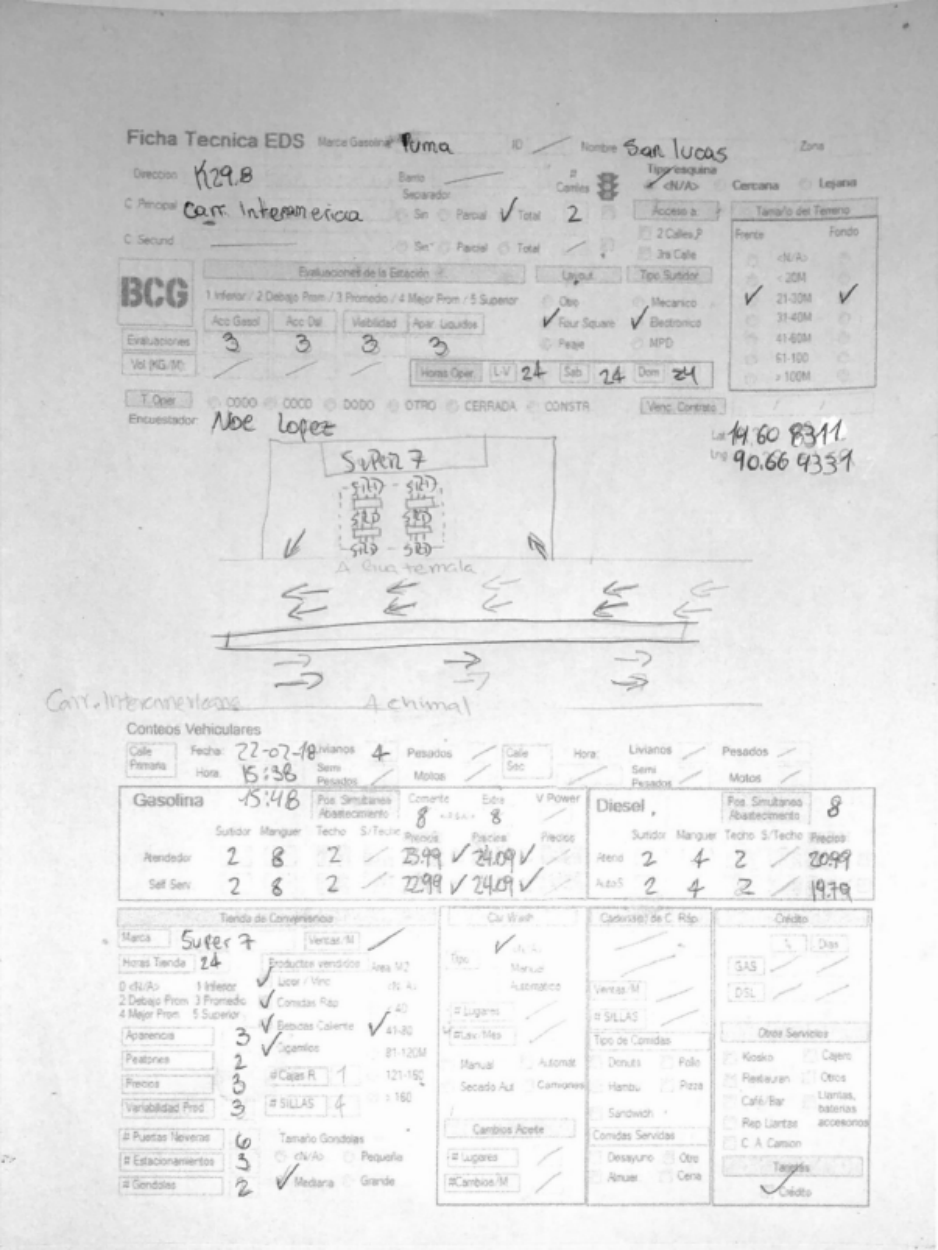 Ficha Tecnica EDS Marca Gasolina Puma ID Nombre San lucas Zona
Direccion K29.8 Barrio # Carriles Tipo esquina <N/A> Cercana Lejana
Separador
C Principal Carr. Interamericia Sin Parcial ✓ Total 2 Acceso a Tamaño del Terreno
C Secund Sin Parcial Total 2 Calles P Frente Fondo
3ra Calle <N/A>
BCG Evaluaciones de la Estación Layout Tipo Surtidor < 20M
1 Inferior / 2 Debajo Prom / 3 Promedio / 4 Mejor Prom / 5 Superior Mecanico ✓ 21-30M ✓
Acc Gasol Acc Dsl Visibilidad Apar. Liquidos ✓ Four Square ✓ Electronico 31-40M
Evaluaciones 3 3 3 3 Peaje MPD 41-60M
Vol (KG/M): Horas Oper. L-V 24 Sab 24 Dom 24 61-100
> 100M
T. Oper CODO COCO DODO OTRO CERRADA CONSTR Venc. Contrato / /
Encuestador Noe Lopez Lat 14.60 8311
Lng 90.66 9331
Super 7
A Guatemala
Carr. Interamericana A chimal
Conteos Vehiculares
Calle Primaria Fecha: 22-02-18 Livianos 4 Pesados Calle Sec Hora: Livianos Pesados
Hora: 15:38 Semi Pesados Motos Semi Pesados Motos
Gasolina 15:48 Pos. Simultanea Abastecimiento 8 8 V Power Diesel Pos. Simultanea Abastecimiento 8
Surtidor Manguer Techo S/Techo Precios Precios Precios Surtidor Manguer Techo S/Techo Precios
Atendedor 2 8 2 23.99 ✓ 24.09 ✓ Atend 2 4 2 20.99
Self Serv 2 8 2 22.99 ✓ 24.09 ✓ AutoS 2 4 2 19.79
Tienda de Conveniencia Car Wash Cadena(s) de C. Ráp. Crédito
Marca Super 7 Ventas/M ✓ <N/A> % Dias
Horas Tienda 24 Productos vendidos Area M2 Tipo Manual GAS
0 <N/A> 1 Inferior ✓ Licor / Vino <N/A> Automatico Ventas/M DSL
2 Debajo Prom 3 Promedio ✓ Comidas Ráp < 40 # Lugares # SILLAS
4 Mejor Prom 5 Superior ✓ Bebidas Caliente ✓ 41-80 # Lav./Mes Tipo de Comidas Otros Servicios
Apariencia 3 ✓ Cigarrillos 81-120M Manual Automat Donuts Pollo Kiosko Cajero
Peatones 2 # Cajas R. 1 121-160 Secado Aut Camiones Hambu Pizza Restauran Otros
Precios 3 > 160 Sandwich Café/Bar Llantas, baterias accesorios
Variabilidad Prod 3 # SILLAS 4 Cambios Aceite Comidas Servidas Rep Llantas
# Puertas Neveras 6 Tamaño Gondolas # Lugares Desayuno Otro C. A. Camion
# Estacionamientos 3 <N/A> Pequeña #Cambios/M Almuer Cena Tarjetas
# Gondolas 2 ✓ Mediana Grande ✓ Crédito